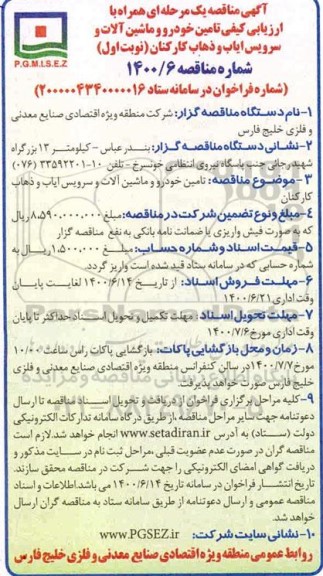 آگهی مناقصه یک مرحله ای همراه با
ارزیابی کیفی تامین خودرو و ماشین آلات و
سرویس ایاب و ذهاب کارکنان (نوبت اول)
P.G.M.I.S.E.Z
شماره مناقصه ۱۴۰۰/۶
(شماره فراخوان در سامانه ستاد ۲۰۰۰۰۰۴۳۴۰۰۰۰۱۶)
۱-نام دستگاه مناقصه گزار: شرکت منطقه ویژه اقتصادی صنایع معدنی
و فلزی خلیج فارس
۲-نشانی دستگاه مناقصه گزار: بندرعباس - کیلومتر ۱۳ بزرگراه
شهید رجائی جنب پاسگاه نیروی انتظامی خونسرخ - تلفن ۱۰-۳۳۵۹۲۲۰۱ (۰۷۶)
۳-موضوع مناقصه: تامین خودرو و ماشین آلات و سرویس ایاب و ذهاب
کارکنان
۴-مبلغ و نوع تضمین شرکت در مناقصه: مبلغ ۸،۵۹۰،۰۰۰،۰۰۰ ریال
که به صورت فیش واریزی یا ضمانت نامه بانکی به نفع مناقصه گزار
۵-قیمت اسناد و شماره حساب: مبلغ ۱،۵۰۰،۰۰۰ ریال به
شماره حسابی که در سامانه ستاد قید شده است واریز گردد.
۶-مهلت فروش اسناد: از تاریخ ۱۴۰۰/۶/۱۴ لغایت پایان
وقت اداری ۱۴۰۰/۶/۲۱
۷-مهلت تحویل اسناد: مهلت تکمیل و تحویل اسناد حداکثر تا پایان
وقت اداری مورخ ۱۴۰۰/۷/۶
۸-زمان و محل بازگشایی پاکات: بازگشایی پاکات راس ساعت ۱۰/۰۰
مورخ ۱۴۰۰/۷/۷ در سالن کنفرانس منطقه ویژه اقتصادی صنایع معدنی و فلزی
خلیج فارس صورت خواهد پذیرفت.
۹-کلیه مراحل برگزاری فراخوان از دریافت و تحویل اسناد مناقصه تا ارسال
دعوتنامه جهت سایر مراحل مناقصه، از طریق درگاه سامانه تدارکات الکترونیکی
دولت (ستاد) به آدرس www.setadiran.ir انجام خواهد شد. لازم است
مناقصه گران در صورت عدم عضویت قبلی، مراحل ثبت نام در سایت مذکور و
دریافت گواهی امضای الکترونیکی را جهت شرکت در مناقصه محقق سازند.
تاریخ انتشار فراخوان در سامانه تاریخ ۱۴۰۰/۶/۱۴ می باشد. اطلاعات و اسناد
مناقصه عمومی و ارسال دعوتنامه از طریق سامانه ستاد به مناقصه گران ارسال
خواهد شد.
۱۰-نشانی سایت شرکت: www.PGSEZ.ir
روابط عمومی منطقه ویژه اقتصادی صنایع معدنی و فلزی خلیج فارس